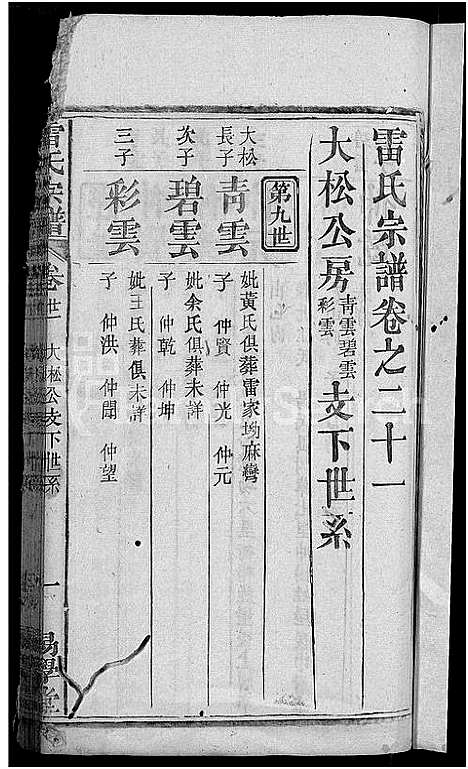 雷氏宗譜卷之二十一
大松公房青雲碧雲彩雲支下世系
第九世
大松長子
青雲
妣黃氏俱葬雷家坳麻灣
子 仲賢 仲光 仲元
次子
碧雲
妣余氏俱葬未詳
子 仲乾 仲坤
三子
彩雲
妣王氏葬俱未詳
子 仲洪 仲聞 仲望
雷氏宗譜 卷廿一 大松公支下世系 一